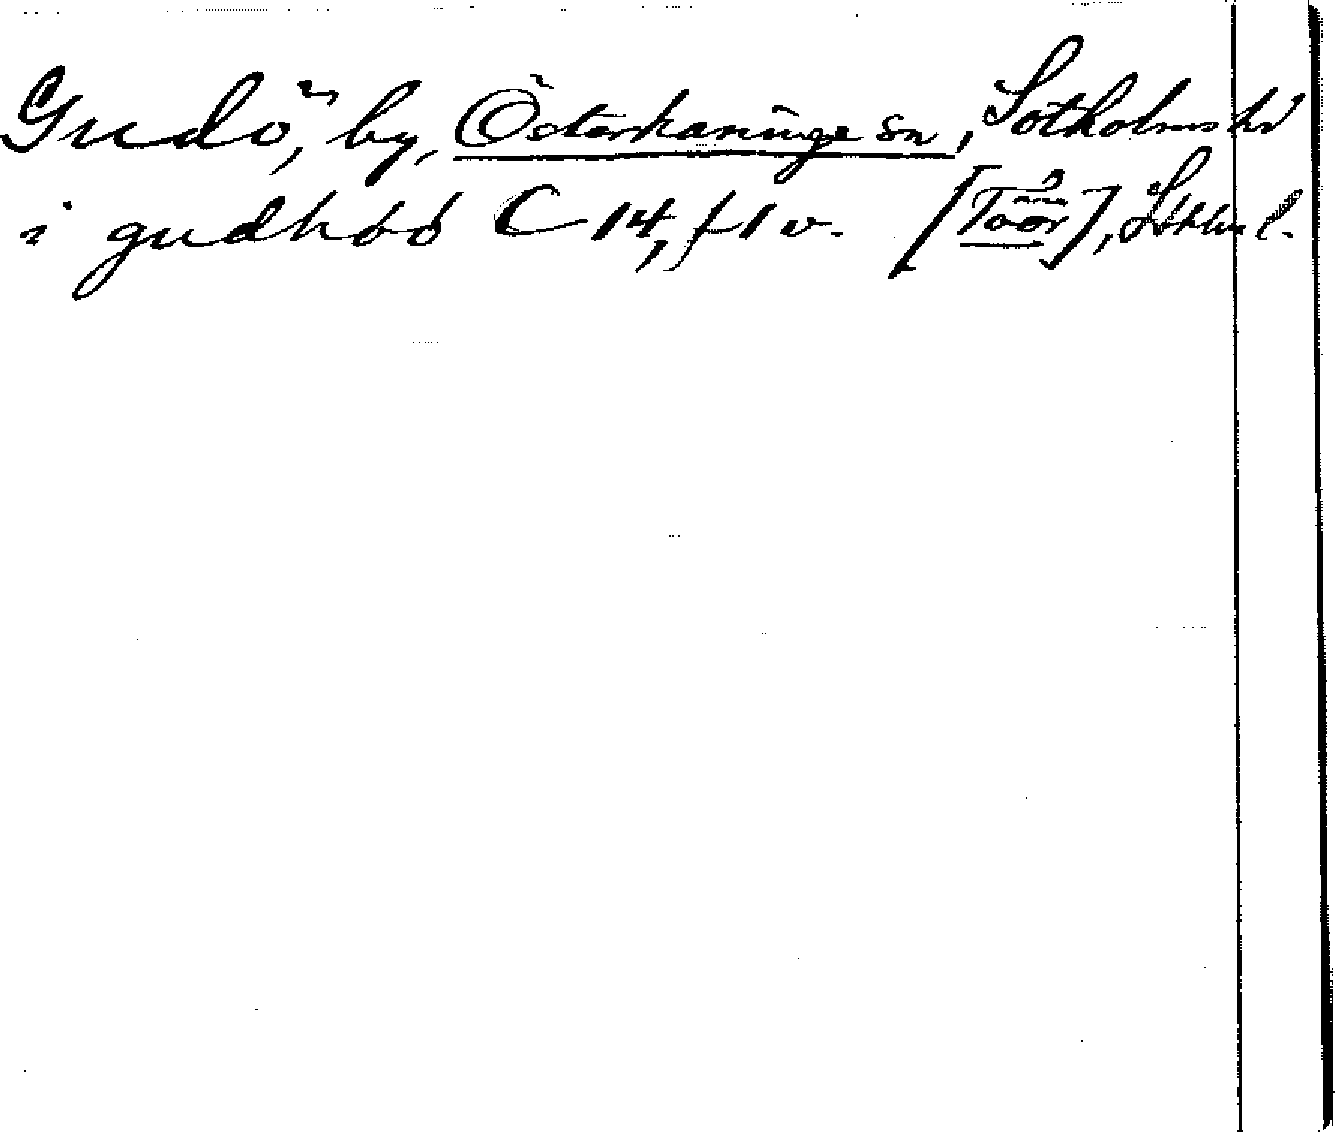 Gudö, by, Österhaninge sn, Sotholms hd
i gudhöö C 14, f 1 v. [Töör], Sthlm l.